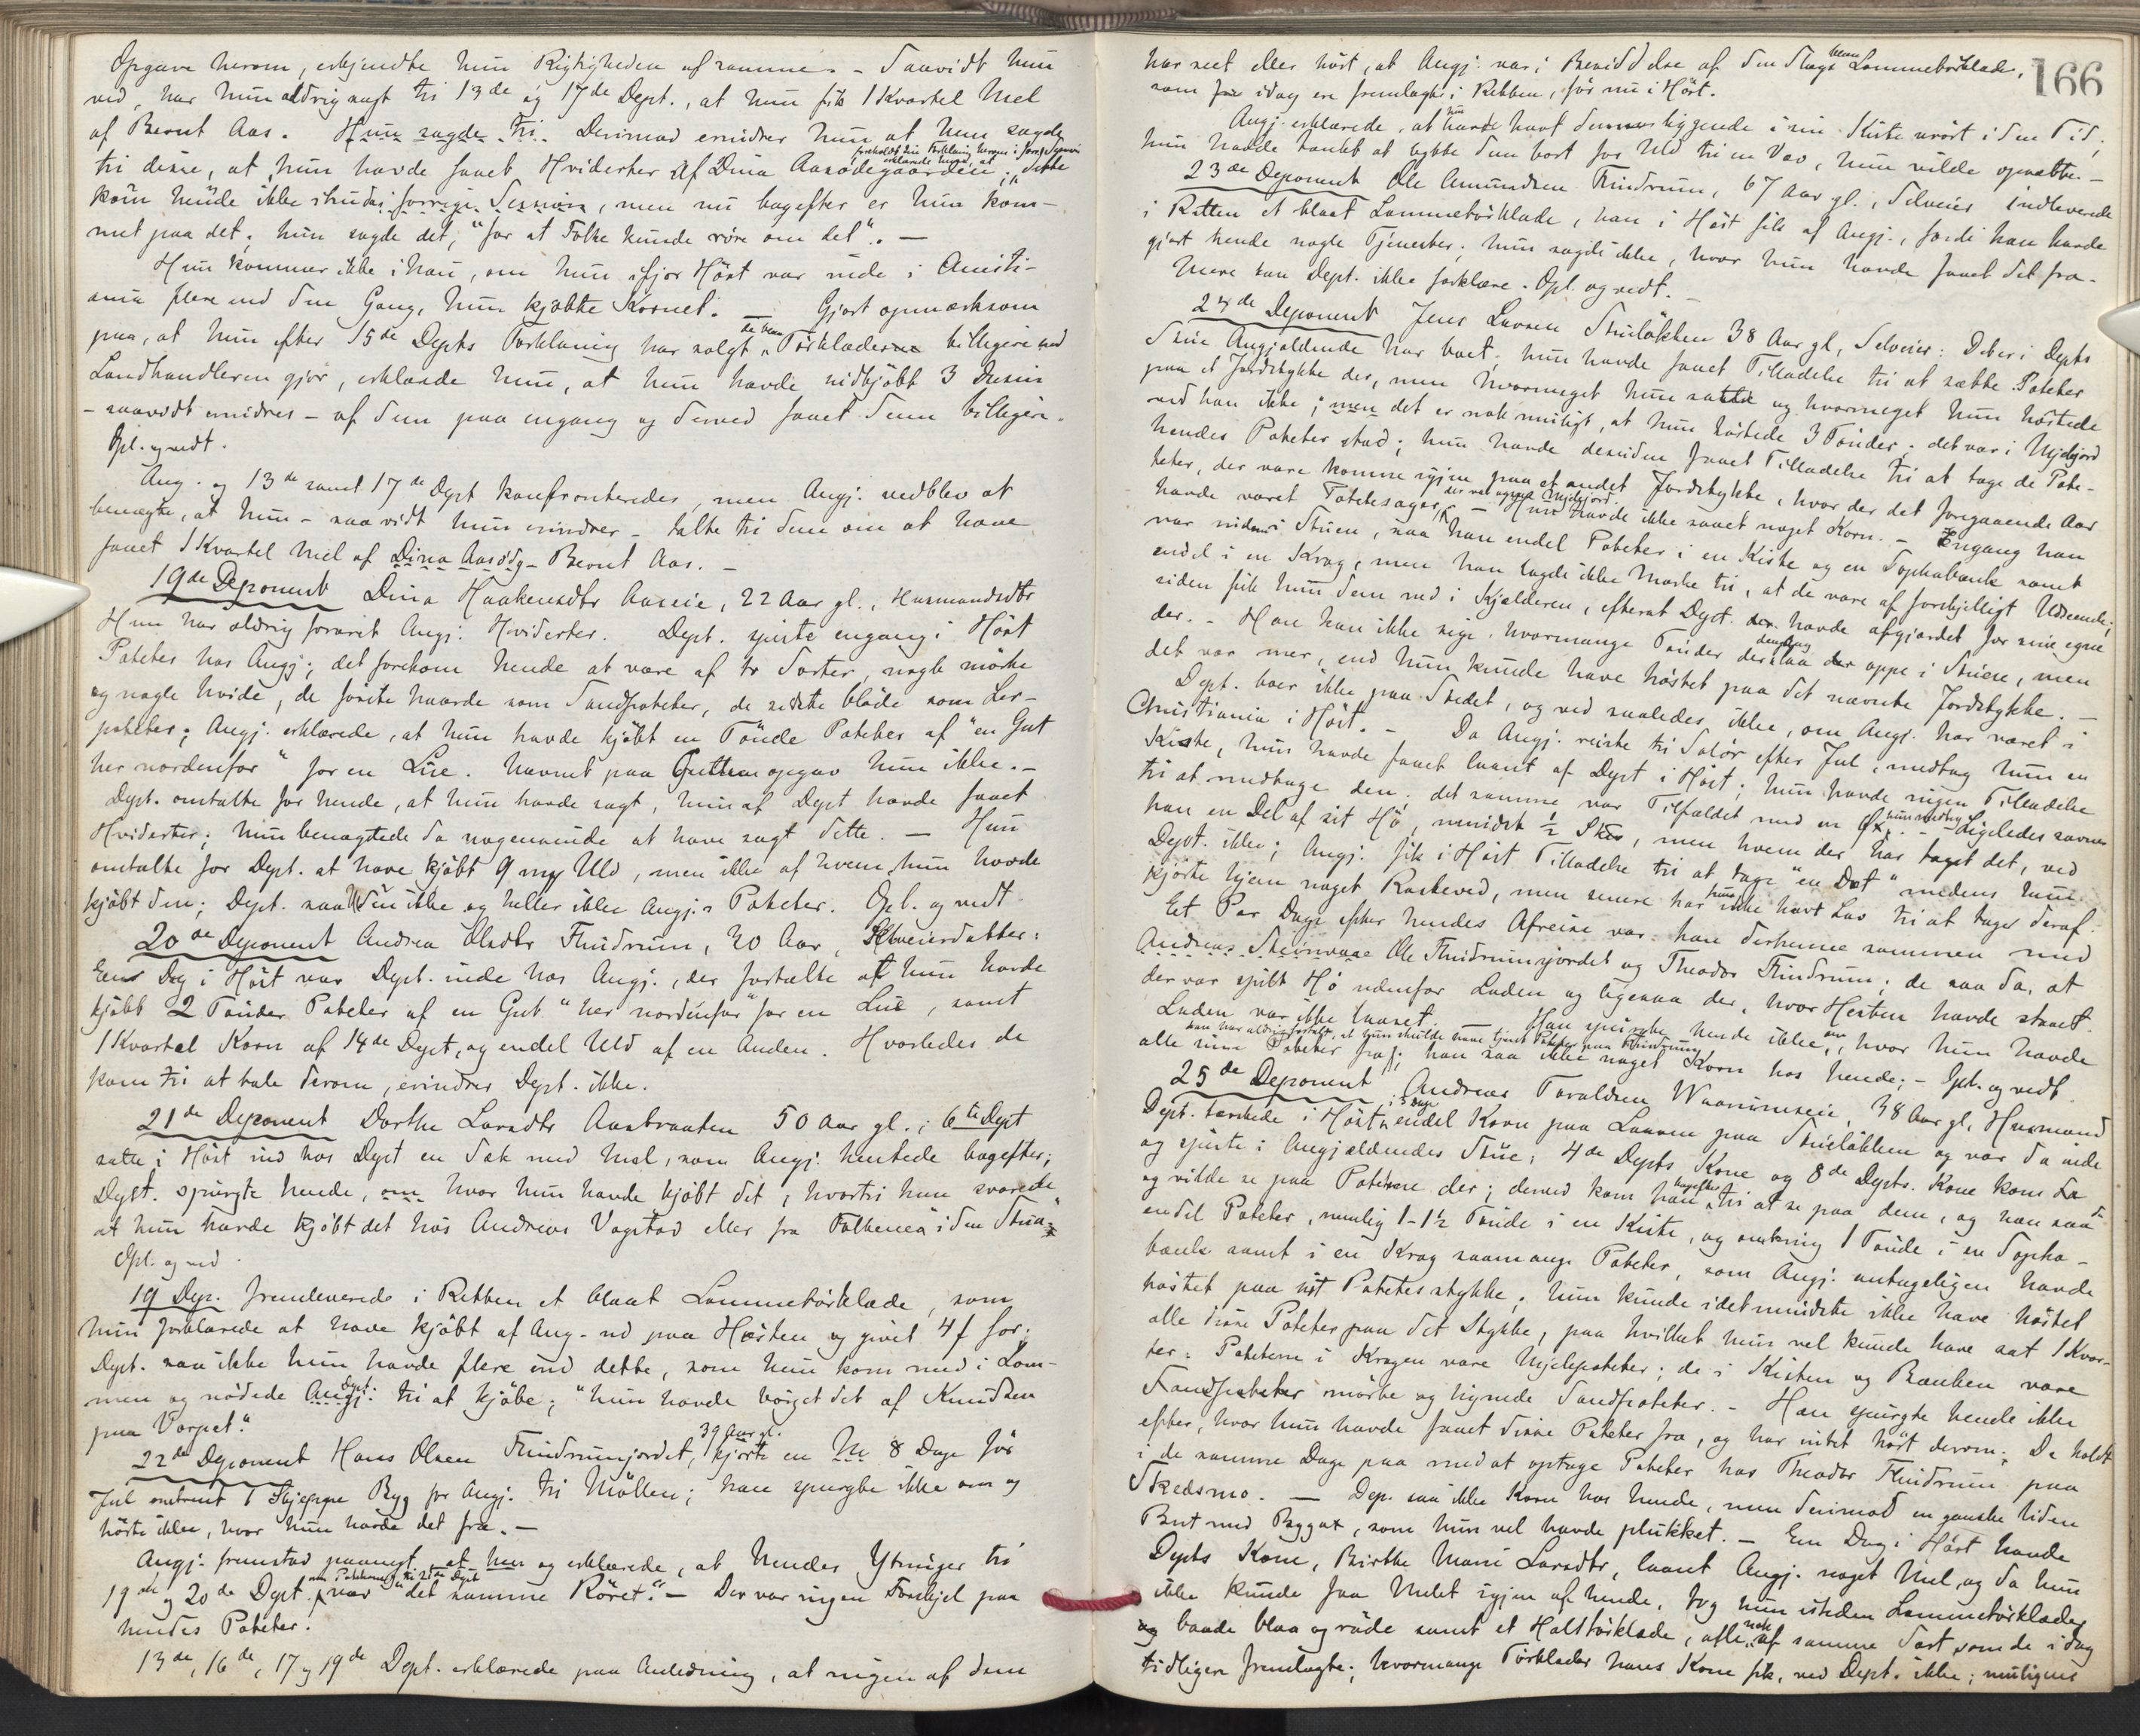 Opgave herom, erkjendte hun Rigtigheden af samme. – Saavidt hun
ved, har hun aldrig sagt til 13de og 17de Dept., at hun fik 1 Kvartel Mel
af Bernt Aas. Hun sagde til Derimod erindrer hun at hun sagde
foreholdt sin Forklaring herom i forrige Session
erklærede Angj., at
til disse, at hun havde faaet Hviderter af Dina Aasødegaarden; dette
kom hende ikke ihu da i forrige Session, men nu bagefter er hun kom-
met paa det; hun sagde det, "for at Folke kunde røre om det". —
Hun kommer ikke ihau, om hun ifjor Høst var inde i Christi-
ania flere end den Gang, hun kjøbte Kornet. — Gjort opmærksom
de blaa
paa, at hun efter 15de Depts Forklaring har solgt Tørklæderne billigere end
Landhandleren gjør, erklærede hun, at hun havde indkjøbt 3 Dusin
– saavidt erindres – af dem paa engang og derved faaet dem billigere.
Opl. og vedt.
Ang. og 13de samt 17de Dept konfronteredes, men Angj. vedblev at
benægte, at hun – saa vidt hun erindrer – talte til dem om at have
faaet 1 Kvartel Mel af Dina Aasødg– Bernt Aas. –
19de Deponent Dina Haakensdtr Aaseie, 22 Aar gl., Husmandsdtr
Hun har aldrig foræret Angj. Hviderter. Dept. spiste engang i Høst
Poteter hos Angj; det forekom hende at være af to Sorter, nogle mørke
og nogle hvide, de første haarde som Sandpoteter, de sidste bløde som Ler-
poteter; Angj. erklærede, at hun havde kjøbt en Tønde Poteter af "en Gut
her nordenfor" for en Lue. Navnet paa Gutten opgav hun ikke. –
Dept. omtalte for hende, at hun havde sagt, hun af Dept havde faaet
Hviderter; hun benægtede da nogensinde at have sagt dette. — Hun
omtalte for Dept. at have kjøbt 9 Mrk Uld, men ikke af hvem hun havde
kjøbt den; Dept. saa Ulden ikke og heller ikke Angj.s Poteter. Opl. og vedt.
20de Deponent Andrea Olsdtr Thudrum, 20 Aar, Selveierdatter:
Een Dag i Høst var Dept. inde hos Angj., der fortalte at hun havde
kjøbt 2 Tønder Poteter af en Gut "her nordenfor" for en Lue, samt
1 Kvartel Korn af 14de Dept, og endel Uld af en Anden. Hvorledes de
kom til at tale derom, erindrer Dept. ikke.
21de Deponent Dorthe Larsdtr Aasbraaten 50 Aar gl.; 6te Dept
satte i Høst ind hos Dept en Sæk med Mel, som Angj. hentede bagefter;
Dept. spurgte hende, om hvor hun havde kjøbt det, hvortil hun svarede
at hun havde kjøbt det hos Andreas Vogstad eller fra "Folkenea" i den Stua.
Opl. og ved.
19 Dep. fremleverede i Retten et blaat Lommetørklæde, som
hun forklarede at have kjøbt af Ang– ud paa Høsten og givet 4 ƒ for;
Dept. saa ikke hun havde flere end dette, som hun kom med i Lom-
Dept.
men og nødede Angj: til at kjøbe; "hun havde børget det af Knudsen
paa Vorpet".
39 Aar gl.
22de Deponent Hans Olsen Thudrumsjordet, kjørte en M 8 Dage før
Jul omtrent 1 Skjeppe Byg for Angj. til Møllen; han spurgte ikke om og
hørte ikke, hvor hun havde det fra. –
Angj. fremstod paanyt, at hun og erklærede, at hendes Ytringer til
om Poteterne til 21de Dept
19de og 20de Dept. var "det samme Røret". – Der var ingen Forskjel paa
hendes Poteter.
13de, 16de, 17 og 19de Dept. erklærede paa Anledning, at ingen af dem
166
blaa
har seet eller hørt, at Angj. var i Besiddelse af den Slags Lommetørklæde,
som for idag ere fremlagte i Retten, før nu i Høst.
hun
Angj. erklærede, at havde havt dem liggende i sin Kiste urørt i den Tid;
hun havde tænkt at bytte dem bort for Uld til en Væv, hun vilde opsætte. –
23de Deponent Ole Amundsen Thudrum, 67 Aar gl., Selveier indleverede
i Retten et blaat Lommetørklæde, han i Høst fik af Angj., fordi han havde
gjort hende nogle Tjenester; hun sagde ikke, hvor hun havde faaet det fra.
Mere kan Dept. ikke forklare. Opl. og vedt.
24de Deponent Jens Larsen Stuløkken 38 Aar gl, Selveier: Det er i Depts
Stue Angjældende har boet; hun havde faaet Tilladelse til at sætte Poteter
paa et Jordstykke der, men hvormeget hun satte og hvormeget hun høstede
ved han ikke; men det er nok muligt, at hun høstede 3 Tønder; det var i Nyjord
hendes Poteter stod; hun havde desuden faaet Tilladelse til at tage de Pote-
teter, der vare komne igjen paa et andet Jordstykke, hvor der det foregaaende Aar
der var ogsaa Nyjord
havde været Potetesager. – Hun havde ikke saaet noget Korn. – Engang han
var inden i Stuen, saa han endel Poteter i en Kiste og en Sophabænk samt
endel i en Krog, men han lagde ikke Mærke til, at de vare af forskjelligt Udseende;
siden fik hun dem ned i Kjælderen, efterat Dept. der havde afgjærdet for sine egne
der. – Han kan ikke sige, hvormange Tønder der laa der oppe i Stuen, men
det var mer, end hun kunde have høstet paa det nævnte Jordstykke. –
Dept. boer ikke paa Stedet, og ved saaledes ikke, om Angj. har været i
Christiania i Høst. – Da Angj. reiste til Solør efter Jul, medtog hun en
Kiste, hun havde faaet laant af Dept i Høst; hun havde ingen Tilladelse
til at medtage den; det samme var Tilfældet med en Øx, hun medtog. – Ligeledes savner
han en Del af sit Hø, mindst ½ Sk℔, men hvem der har taget det, ved
Dept. ikke; Angj. fik i Høst Tilladelse til at tage "en Dot" medens hun
kjørte hjem noget Raskeved, men senere har hun ikke havt Lov til at tage deraf.
Et Par Dage efter hendes Afreise var han derhenne sammen med
Andreas Steinvaae Ole Thudrumsjordet og Theodor Thudrum; de saa da, at
der var spildt Hø udenfor Laden og ligesaa der, hvor Hesten havde staaet.
Laden var ikke laaset. Han spurgte hende ikke, om, hvor hun havde
han har aldrig fortalt, at hun skulde have tjent Poteter paa Thudrum
alle sine Poteter fra; han saa ikke noget Korn hos hende; – Opl. og vedt.
25de Deponent Andreas Taraldsen Waarumseie, 38 Aar gl, Husmand
i 3 Dage
Dept. tærskede i Høst endel Korn paa Laaven paa Stueløkken og var da inde
og spiste i Angjældendes Stue; 4de Depts Kone og 8de Depts. Kone kom da
bagefter
og vilde se paa Poteterne der; derved kom han til at se paa dem, og han saa da
endel Poteter, nemlig 1–1½ Tønde i en Kiste, og omkring 1 Tønde i en Sopha-
bænk samt i en Krog saamange Poteter, som Angj. antageligen havde
høstet paa sit Potetesstykke; hun kunde i det mindste ikke have høstet
alle disse Poteter paa det Stykke, paa hvilket hun vel kunde have sat 1 Kvar-
ter. Poteterne i Krogen vare Nyjelspoteter; de i Kisten og Bænken vare
Sandpoteter mørke og lignede Sandpoteter. – Han spurgte hende ikke
efter, hvor hun havde faaet disse Poteter fra, og har intet hørt derom; De holdt
i de samme Dage paa med at optage Poteter hos Theodor Thudrum paa
Skedsmo. — Dep. saa ikke Korn hos hende, men derimod en ganske liden
Bnt med Bygax, som hun vel havde plukket. – Een Dag i Høst havde
Depts Kone, Birthe Marie Larsdtr, laant Angj. noget Mel, og da hun
ikke kunde faa Melet igjen af hende, tog hun istedet Lommetørklæder
og baade blaa og røde samt et Halstørklæde, alle nok af samme Sort som de idag
tidligere fremlagte; hvormange Tørklæder hans Kone fik, ved Dept. ikke; muligens